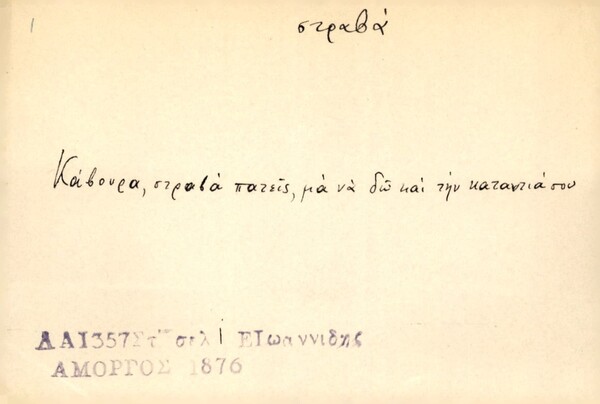 στραβά
Κάβουρα, στραβά πατεῖς, μὰ νὰ δῶ καὶ τὴν καταντιά σου
ΛΑ1357Στ" σελ 1 ΕΙωαννιδης
ΑΜΟΡΓΟΣ 1876